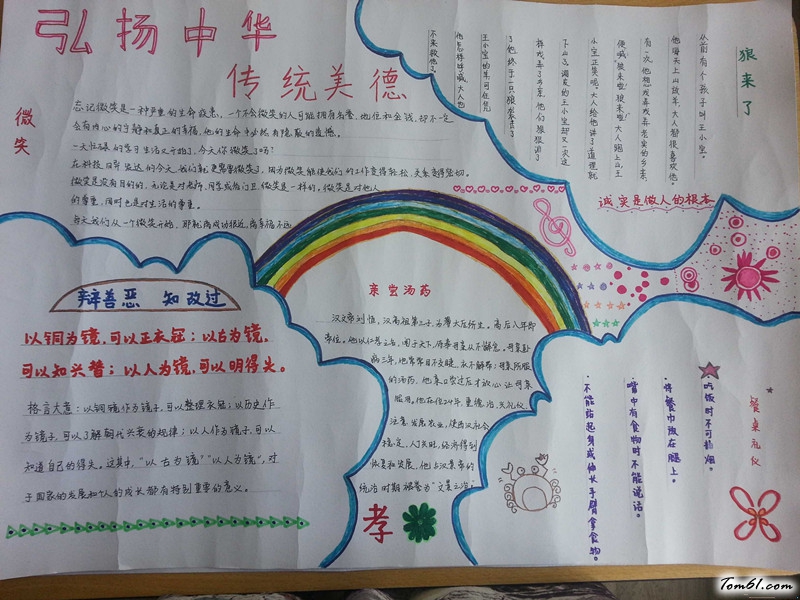 弘扬中华
传统美德
微笑
忘记微笑是一种严重的生命疾患，一个不会微笑的人可能拥有名誉、地位和金钱，却不一定
会有内心的宁静和真正的幸福，他的生命中必然有隐蔽的遗憾。
一天忙碌的学习生活又开始了，今天你微笑了吗？
在科技日益发达的今天，我们就更需要微笑了，因为微笑能使我们的工作变得轻松，关系变得密切。
微笑是没有目的的，无论是对老师、同学或校门卫，微笑是一样的，微笑是对他人
的尊重，同时也是对生活的尊重。
每天我们从一个微笑开始，那就离成功很近，离幸福不远
狼来了
从前有个孩子叫王小宝。
他每天上山放羊，大人都很喜欢他。
有一次，他想戏弄戏弄老实的乡亲，
便喊"狼来啦！狼来啦！"大人跑上山，王
小宝正笑呢。大人给他讲了道理就
下山了，调皮的王小宝却又一次这
样戏弄了乡亲，他们狠狠训了
了他，终于一只狼发来了
王小宝的羊可在咒
他怎样呼喊，大人也
不来救他了。
诚实是做人的根本
辩善恶 知改过
以铜为镜，可以正衣冠；以古为镜，
可以知兴替；以人为镜，可以明得失。
格言大意：以铜镜作为镜子，可以整理衣冠；以历史作
为镜子，可以了解朝代兴衰的规律；以人作为镜子，可以
知道自己的得失。这其中，"以古为镜""以人为镜"，对
于国家的发展和个人的成长都有特别重要的意义。
亲尝汤药
汉文帝刘恒，汉高祖第三子，为薄太后所生。高后八年即
帝位。他以仁孝之名，闻于天下，侍奉母亲从不懈怠。母亲卧
病三年，他常常目不交睫，衣不解带；母亲所服
的汤药，他亲口尝过后才放心让母亲
服用。他在位24年，重德治，兴礼仪，
注意发展农业，使西汉社会
稳定，人丁兴旺，经济得到
恢复和发展，他与汉景帝的
统治时期被誉为"文景之治"。
孝
餐桌礼仪
·吃饭时不可抽烟。
·将餐巾放在腿上。
·嘴中有食物时不能说话。
·不能站起身或伸长手臂拿食物。
Tom61.com